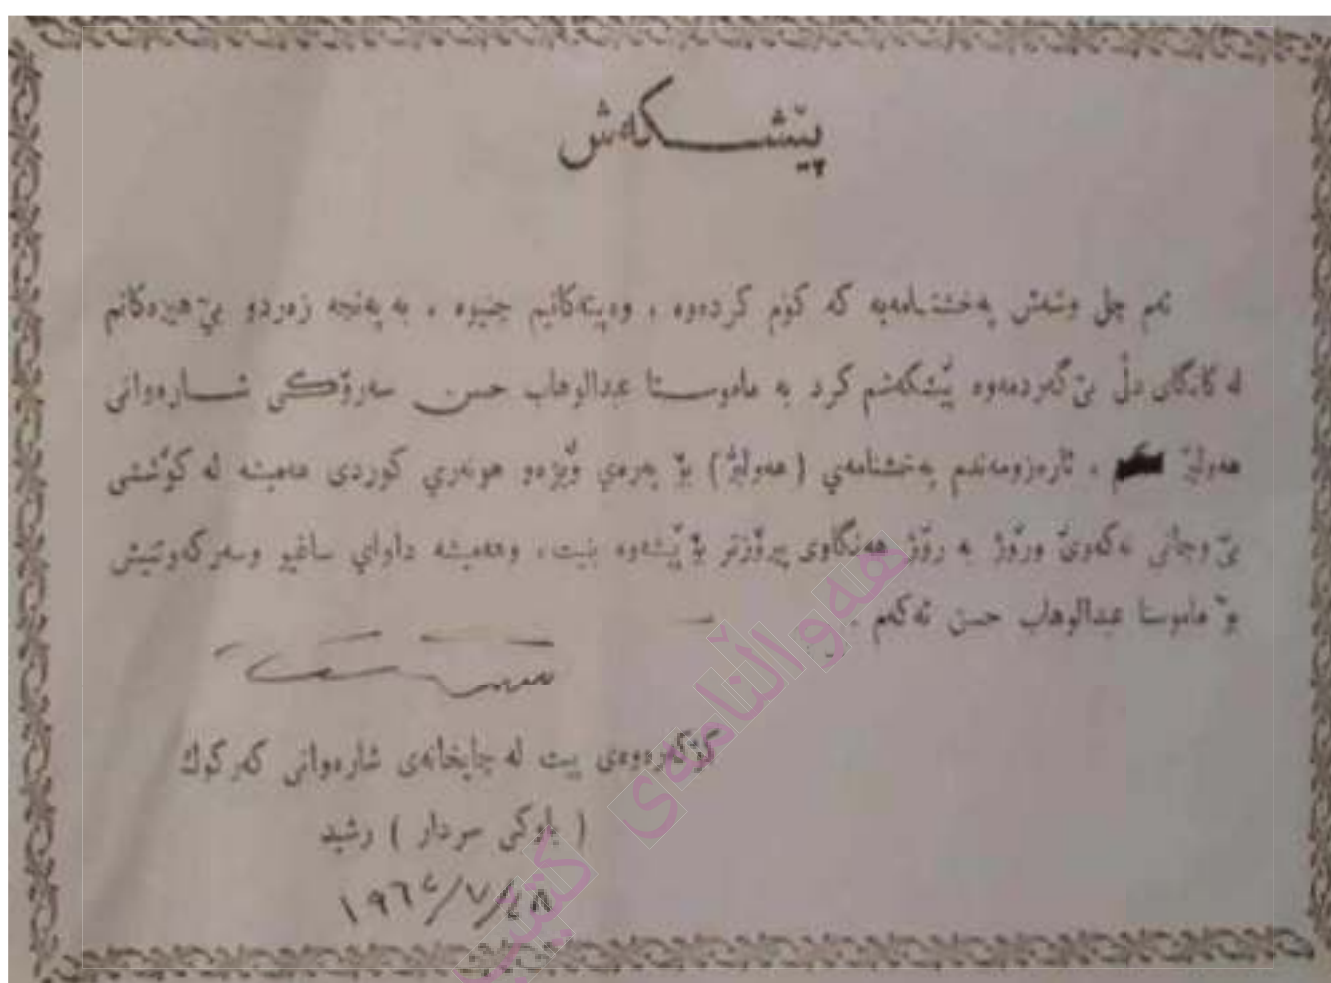 پێشکەش
ئەم چل وشەش پەخشنامەیە کە کۆم کردەوە ، وەپیتەکانیم چنیوە ، بە پەنجە زەردو بێ هیزەکانم
لە کانگای دڵ بێ گەردمەوە پێشکەشم کرد بە ماموستا عبدالوهاب حسن سەرۆکی شارەوانی
هەولێر ، ئارەزومەندم پەخشنامەي (هەولێر) بۆ بەرەي وێژەو هونەري کوردی هەمیشە لە کۆششی
بێ وچانی نەکەوێ ورۆژ بە رۆژ هەنگاوی پیرۆزتر بۆ پێشەوە بنیت ، وهەمیشە داوای ساغیو وسەرکەوتنیش
بۆ ماموستا عبدالوهاب حسن ئەکەم .
کۆکەرەوەی پیت لە چاپخانەی شارەوانی کەرکوك
( باوکی سردار ) رشید
هەواڵنامەی کتێب